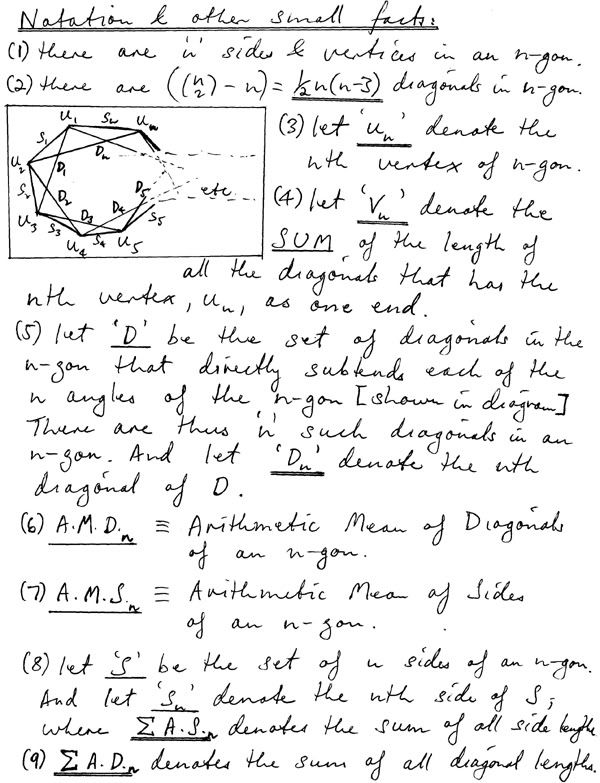 Notation & other small facts:
(1) there are 'n' sides & vertices in an n-gon.
(2) there are ((n 2) - n) = ½n(n-3) diagonals in n-gon.
U₁ Sₙ Uₙ
S₁ Dₙ
U₂ D₁
S₂ D₂ D₅ etc
U₃ D₃ D₄ S₅
S₃ U₄ S₄ U₅
(3) let 'Uₙ' denote the
nth vertex of n-gon.
(4) let 'Vₙ' denote the
SUM of the length of
all the diagonals that has the
nth vertex, Uₙ, as one end.
(5) let 'D' be the set of diagonals in the
n-gon that directly subtends each of the
n angles of the n-gon [shown in diagram]
There are thus 'n' such diagonals in an
n-gon. And let 'Dₙ' denote the nth
diagonal of D.
(6) A.M.D.ₙ ≡ Arithmetic Mean of Diagonals
of an n-gon.
(7) A.M.S.ₙ ≡ Arithmetic Mean of Sides
of an n-gon.
(8) let 'S' be the set of n sides of an n-gon.
And let 'Sₙ' denote the nth side of S;
where ΣA.S.ₙ denotes the sum of all side lengths
(9) ΣA.D.ₙ denotes the sum of all diagonal lengths.